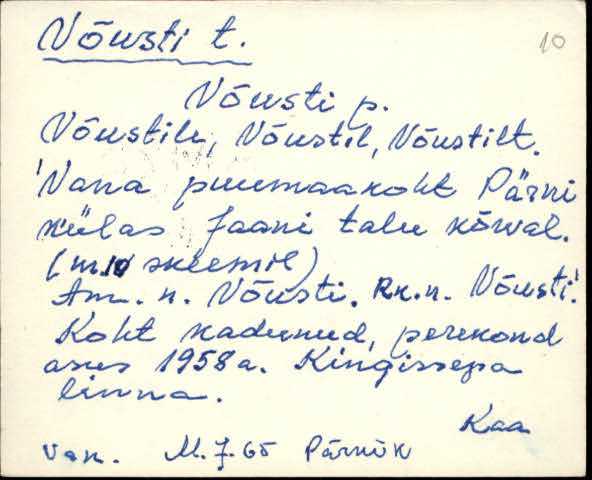 Võusti t.
10
Võusti p.
Võustile, Võustil, Võustilt.
Vana puumaakoht Pärni
külas Jaani talu kõrval.
(nr. 10 skeemil)
Am. n. Võusti. Rk.n. Võusti.
Koht kadunud, perekond
asus 1958 a. Kingissepa
linna.
Kaa
Van. M. J. 65 Pärnik